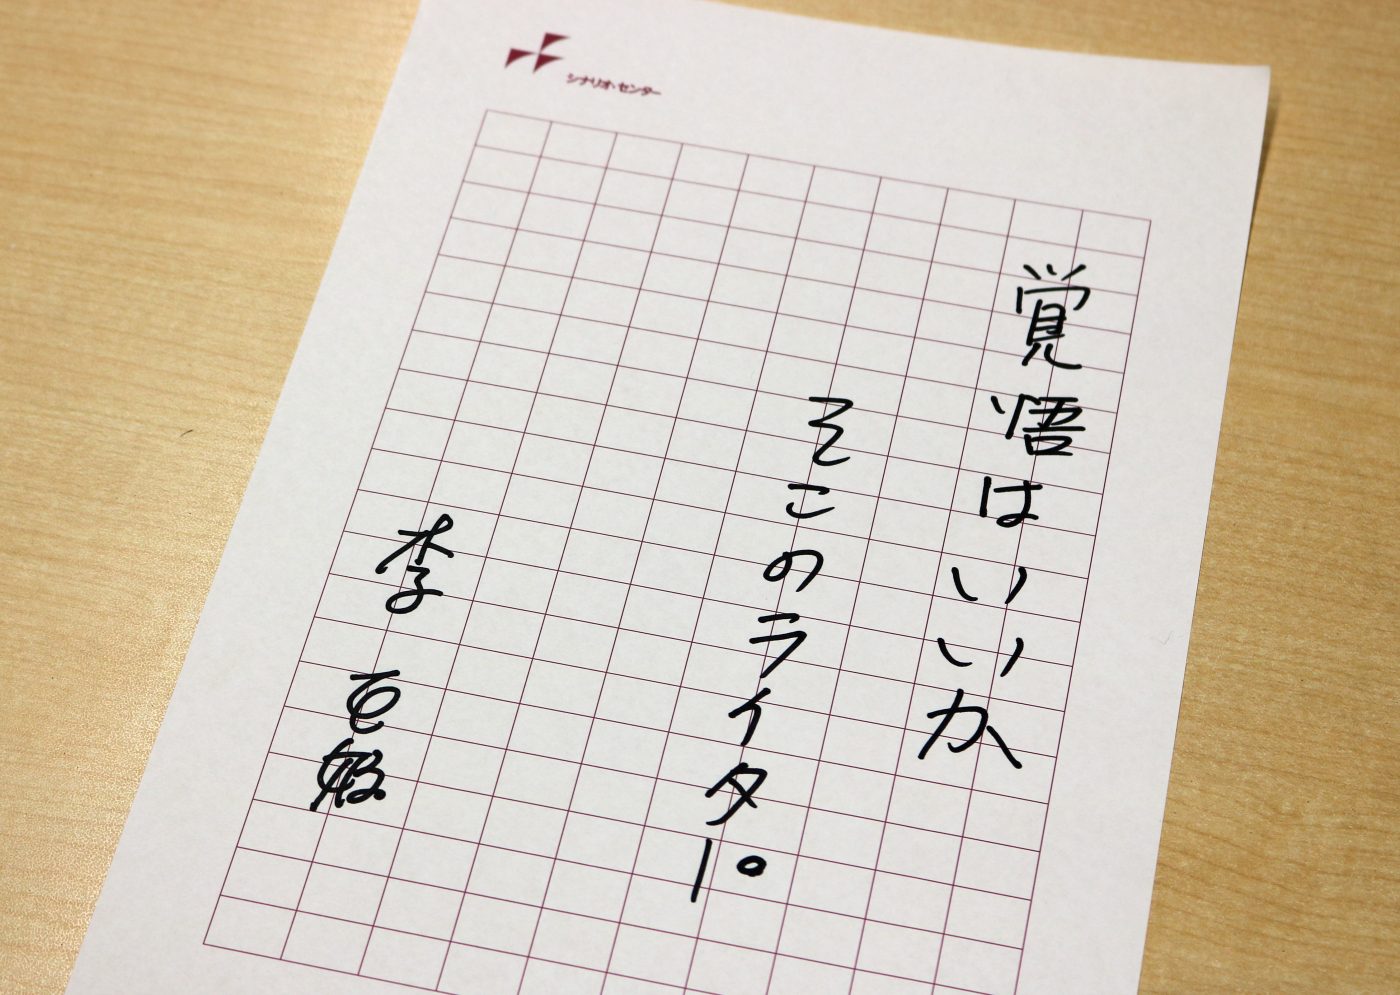 シナリオ・センター
覚悟はいいか
そこのライター。
李